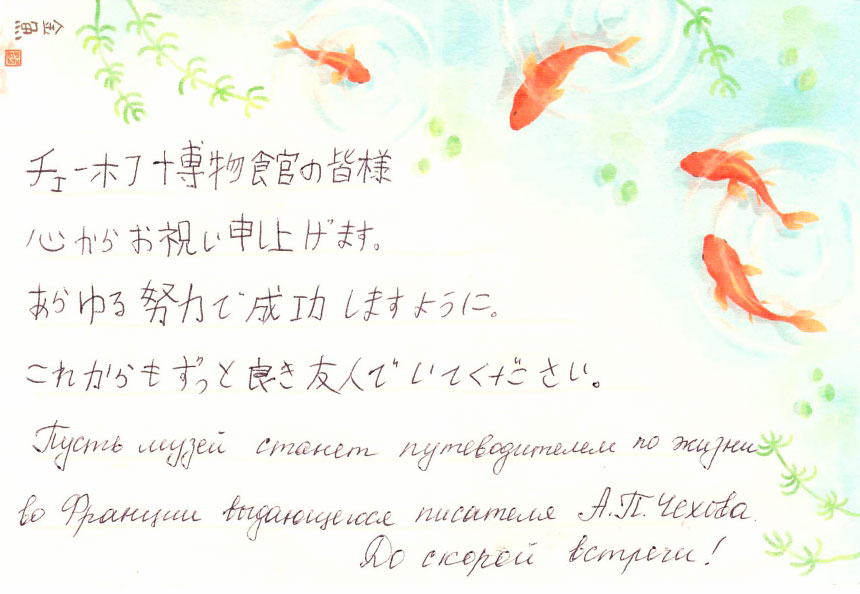 金魚
チェーホフ博物館の皆様
心からお祝い申し上げます。
あらゆる努力で成功しますように。
これからもずっと良き友人でいてください。
Пусть музей станет путеводителем по жизни
во Франции выдающегося писателя А.П. Чехова.
До скорой встречи!